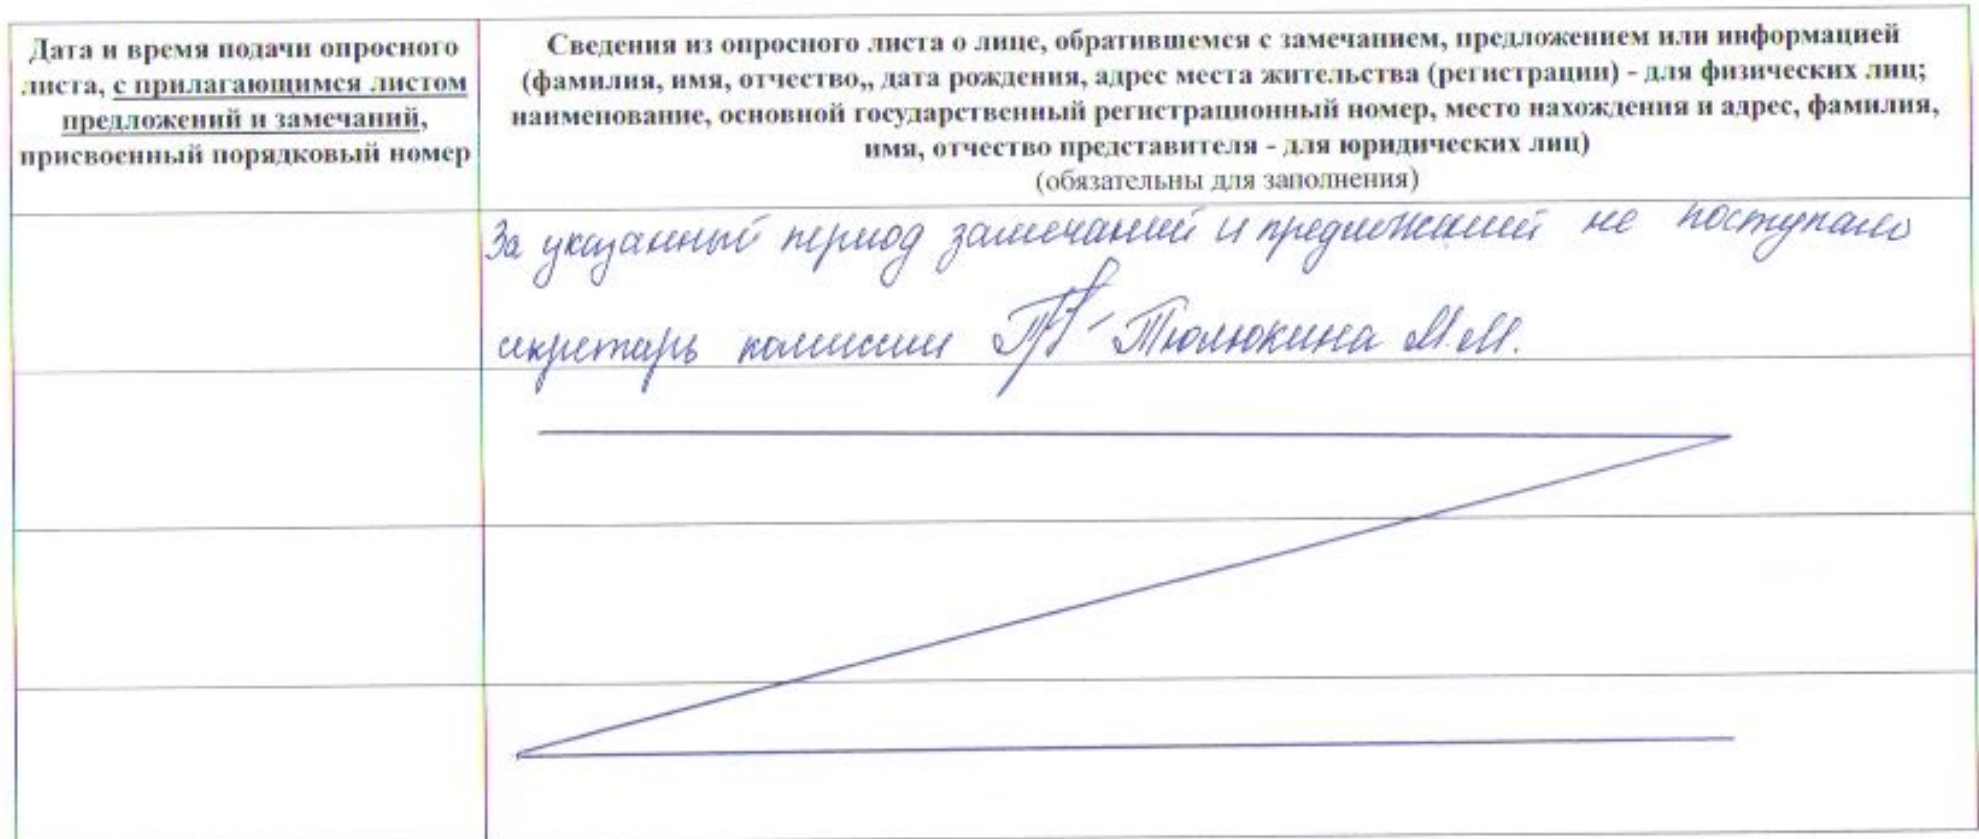 Дата и время подачи опросного
листа, с прилагающимся листом
предложений и замечаний,
присвоенный порядковый номер
Сведения из опросного листа о лице, обратившемся с замечанием, предложением или информацией
(фамилия, имя, отчество,, дата рождения, адрес места жительства (регистрации) - для физических лиц;
наименование, основной государственный регистрационный номер, место нахождения и адрес, фамилия,
имя, отчество представителя - для юридических лиц)
(обязательны для заполнения)
За указанный период замечаний и предложений не поступало
секретарь комиссии Тюлюкина М.М.